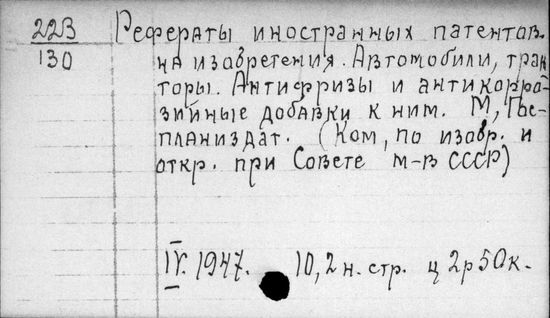 223 Рефераты иностранных патентов
130 на изобретения. Автомобили, трак
торы. Антифризы и антикорро-
зийные добавки к ним. М, Гос-
планиздат. (Ком, по изобр. и
откр. при Совете м-в СССР)
IV. 1947. 10, 2 н. стр. ц 2р 50к.